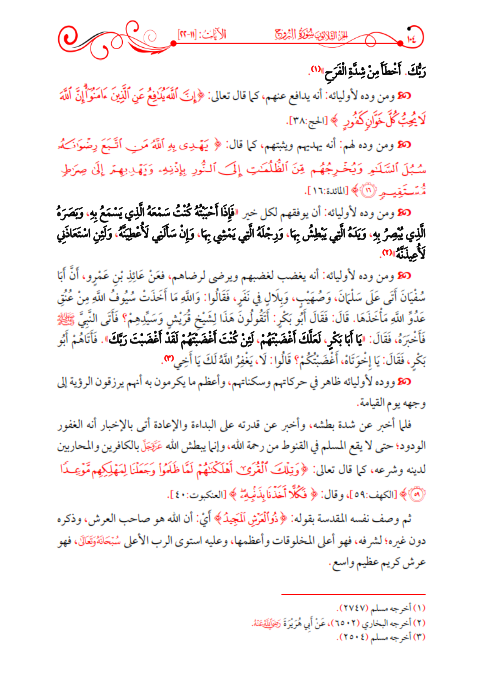 ١٠٤
الجزء الثلاثون سُورَةُ البُرُوجِ
الآيات: [١١-٢٢]
رَبُّكَ، أَخْطَأَ مِنْ شِدَّةِ الْفَرَحِ»(١).
ومن وده لأوليائه: أنه يدافع عنهم، كما قال تعالى: ﴿إِنَّ ٱللَّهَ يُدَٰفِعُ عَنِ ٱلَّذِينَ ءَامَنُوٓاْۗ إِنَّ ٱللَّهَ
لَا يُحِبُّ كُلَّ خَوَّانٖ كَفُورٍ﴾ [الحج:٣٨].
ومن وده لهم: أنه يهديهم ويثبتهم، كما قال: ﴿يَهۡدِي بِهِ ٱللَّهُ مَنِ ٱتَّبَعَ رِضۡوَٰنَهُۥ
سُبُلَ ٱلسَّلَٰمِ وَيُخۡرِجُهُم مِّنَ ٱلظُّلُمَٰتِ إِلَى ٱلنُّورِ بِإِذۡنِهِۦ وَيَهۡدِيهِمۡ إِلَىٰ صِرَٰطٖ
مُّسۡتَقِيمٖ ١٦﴾ [المائدة:١٦].
ومن وده لأوليائه: أن يوفقهم لكل خير «فَإِذَا أَحْبَبْتُهُ كُنْتُ سَمْعَهُ الَّذِي يَسْمَعُ بِهِ، وَبَصَرَهُ
الَّذِي يُبْصِرُ بِهِ، وَيَدَهُ الَّتِي يَبْطِشُ بِهَا، وَرِجْلَهُ الَّتِي يَمْشِي بِهَا، وَإِنْ سَأَلَنِي لَأُعْطِيَنَّهُ، وَلَئِنِ اسْتَعَاذَنِي
لَأُعِيذَنَّهُ»(٢).
ومن وده لأوليائه: أنه يغضب لغضبهم ويرضى لرضاهم، فعَنْ عَائِذِ بْنِ عَمْرٍو، أَنَّ أَبَا
سُفْيَانَ أَتَى عَلَى سَلْمَانَ، وَصُهَيْبٍ، وَبِلَالٍ فِي نَفَرٍ، فَقَالُوا: وَاللهِ مَا أَخَذَتْ سُيُوفُ اللهِ مِنْ عُنُقِ
عَدُوِّ اللهِ مَأْخَذَهَا. قَالَ: فَقَالَ أَبُو بَكْرٍ: أَتَقُولُونَ هَذَا لِشَيْخِ قُرَيْشٍ وَسَيِّدِهِمْ؟ فَأَتَى النَّبِيَّ ﷺ
فَأَخْبَرَهُ، فَقَالَ: «يَا أَبَا بَكْرٍ، لَعَلَّكَ أَغْضَبْتَهُمْ، لَئِنْ كُنْتَ أَغْضَبْتَهُمْ لَقَدْ أَغْضَبْتَ رَبَّكَ». فَأَتَاهُمْ أَبُو
بَكْرٍ، فَقَالَ: يَا إِخْوَتَاهُ، أَغْضَبْتُكُمْ؟ قَالُوا: لَا، يَغْفِرُ اللَّهُ لَكَ يَا أَخِي(٣).
ووده لأوليائه ظاهر في حركاتهم وسكناتهم، وأعظم ما يكرمون به أنهم يرزقون الرؤية إلى
وجهه يوم القيامة.
فلما أخبر عن شدة بطشه، وأخبر عن قدرته على البداءة والإعادة أتى بالإخبار أنه الغفور
الودود؛ حتى لا يقع المسلم في القنوط من رحمة الله، وإنما يبطش الله عَزَّوَجَلَّ بالكافرين والمحاربين
لدينه وشرعه، كما قال تعالى: ﴿وَتِلۡكَ ٱلۡقُرَىٰٓ أَهۡلَكۡنَٰهُمۡ لَمَّا ظَلَمُواْ وَجَعَلۡنَا لِمَهۡلِكِهِم مَّوۡعِدٗا
٥٩﴾ [الكهف:٥٩]، وقال: ﴿فَكُلًّا أَخَذۡنَا بِذَنۢبِهِۦ﴾ [العنكبوت:٤٠].
ثم وصف نفسه المقدسة بقوله: ﴿ذُو ٱلۡعَرۡشِ ٱلۡمَجِيدُ﴾ أيْ: أن الله هو صاحب العرش، وذكره
دون غيره؛ لشرفه، فهو أعلى المخلوقات وأعظمها، وعليه استوى الرب الأعلى سُبْحَانَهُ وَتَعَالَى، فهو
عرش كريم عظيم واسع.
(١) أخرجه مسلم (٢٧٤٧).
(٢) أخرجه البخاري (٦٥٠٢)، عَنْ أَبِي هُرَيْرَةَ رَضِيَ اللَّهُ عَنْهُ.
(٣) أخرجه مسلم (٢٥٠٤).